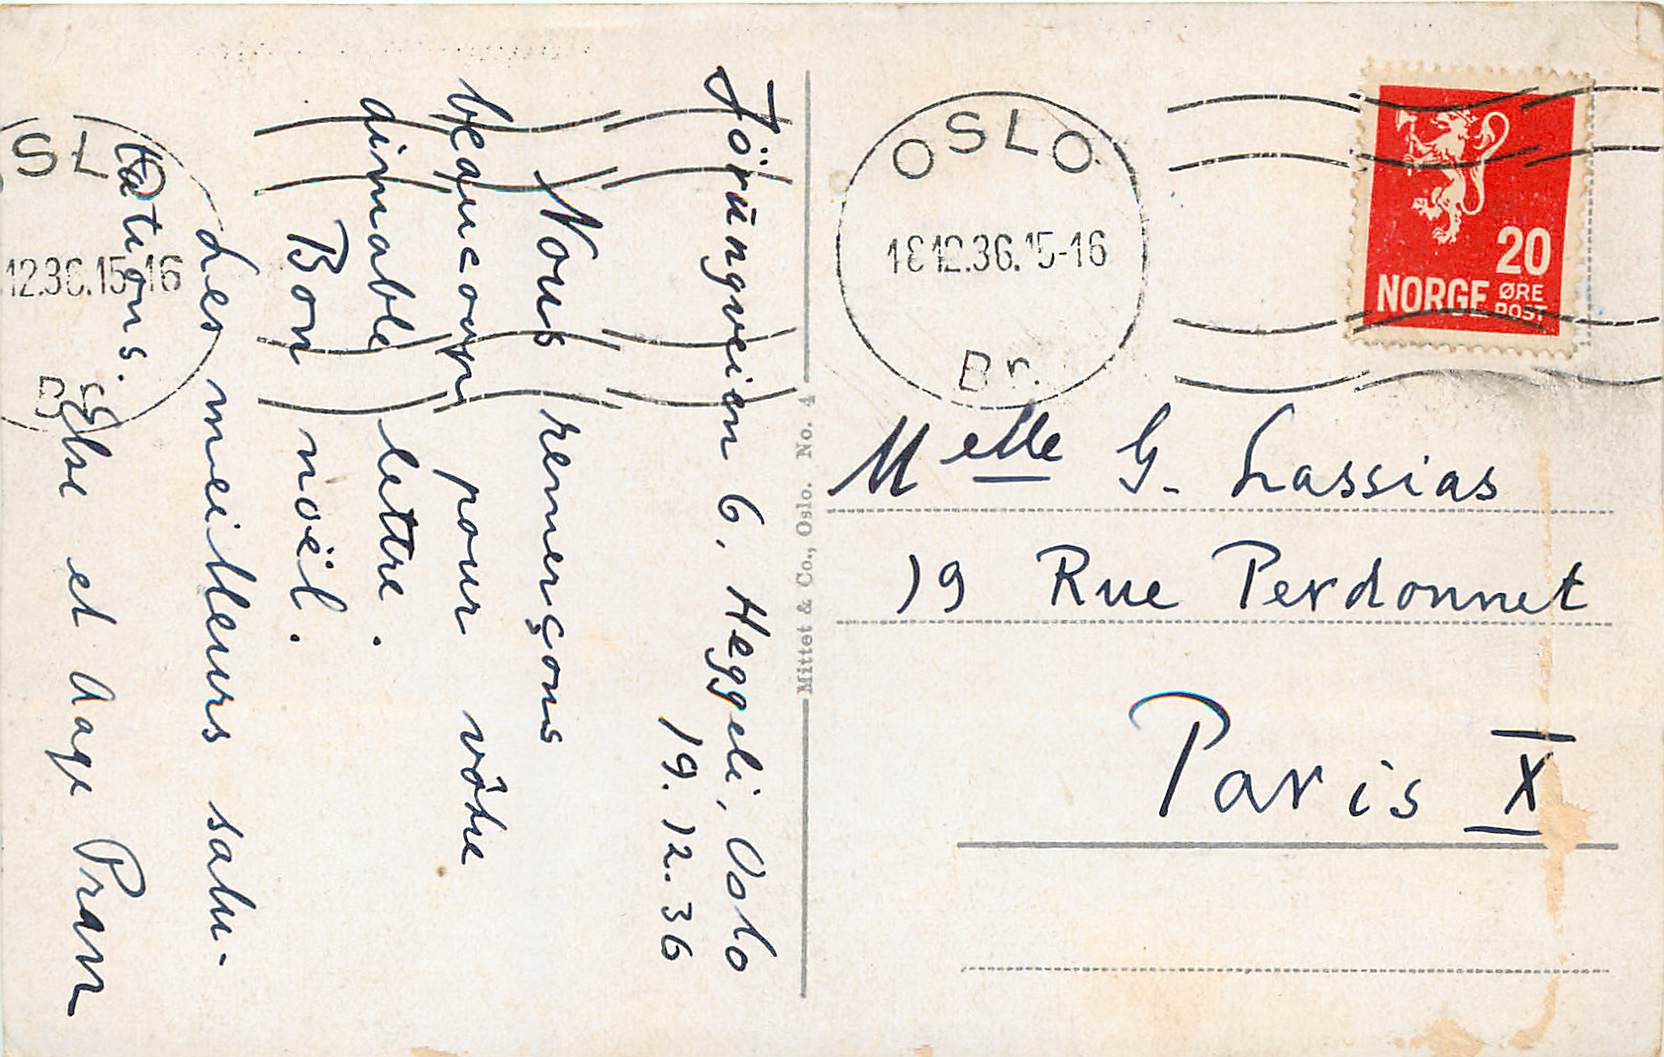 Jörüngveien 6, Heggeli, Oslo
19.12.36
Nous remerçons
beaucoup pour vôtre
aimable lettre.
Bon noël.
Les meilleurs salu-
tations.
Else et Aage Pram
Mittet & Co., Oslo. No. 4
OSLO
12.36.15-16
OSLO
12.36.15-16
Br.
20
NORGE ØRE
POST
Melle G. Lassias
19 Rue Perdonnet
Paris X